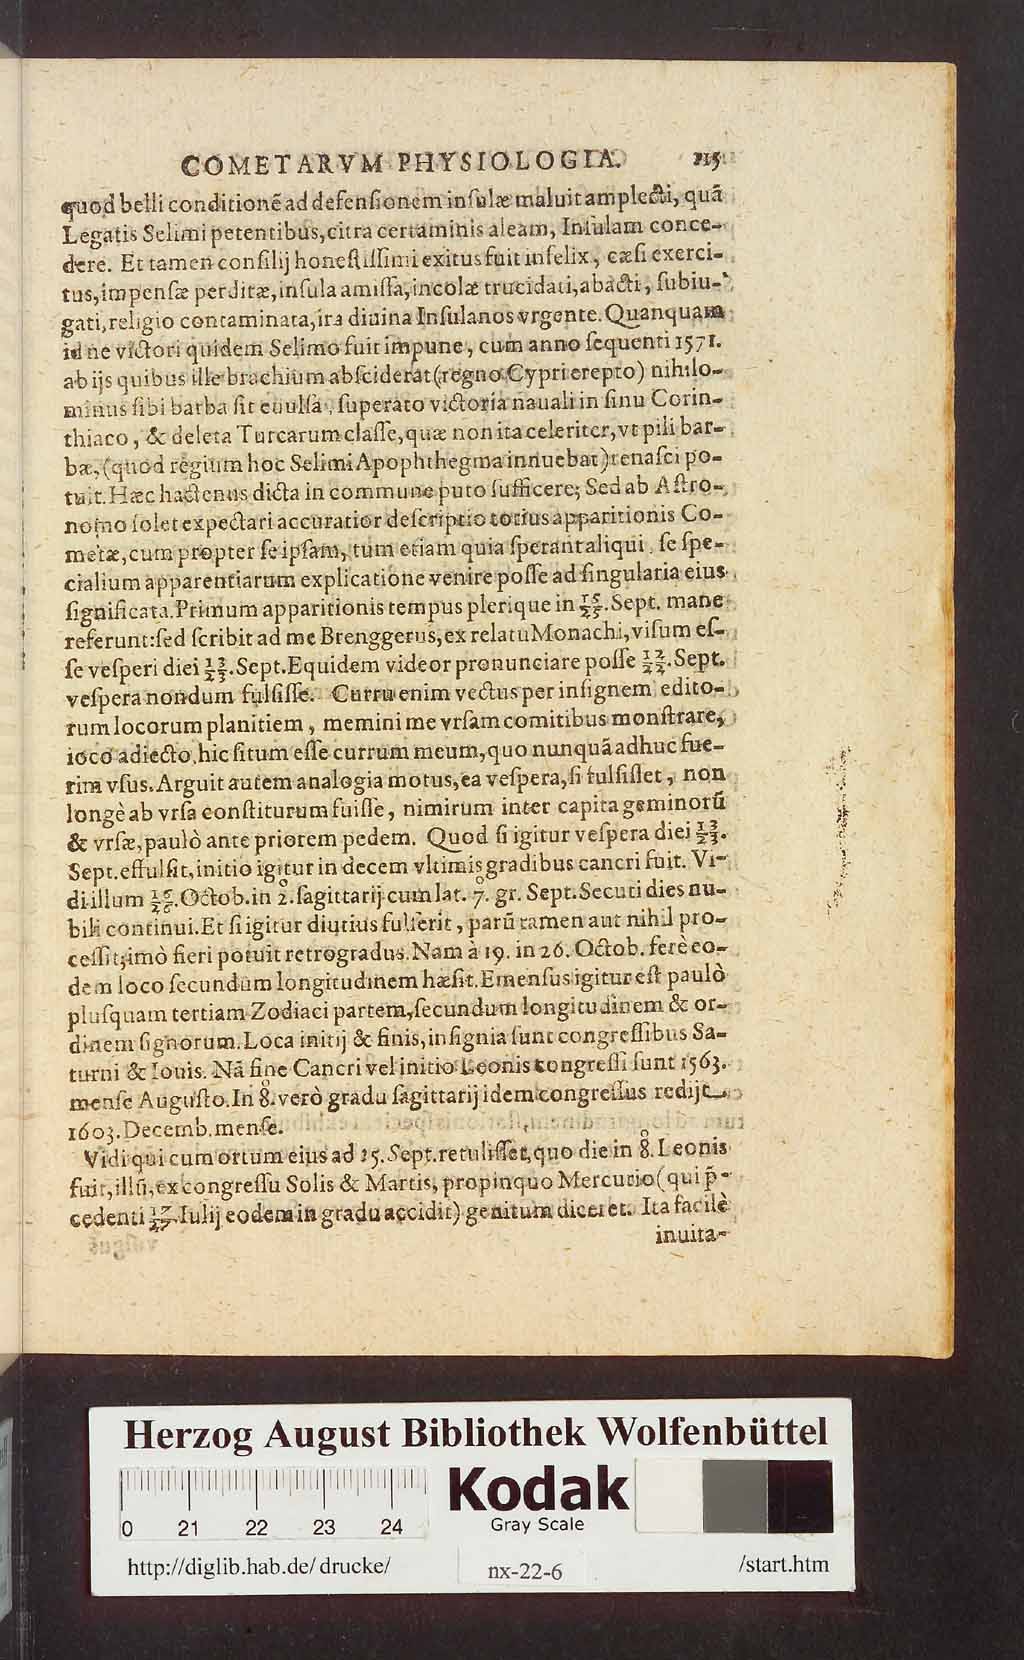 COMETARVM PHYSIOLOGIA. 115
quod belli conditionẽ ad defenſionem inſulæ maluit amplecti, quã
Legatis Selimi petentibus, citra certaminis aleam, Inſulam conce-
dere. Et tamen conſilij honeſtiſſimi exitus fuit infelix, cæſi exerci-
tus, impenſæ perditæ, inſula amiſſa, incolæ trucidati, abacti, ſubiu-
gati, religio contaminata, ira diuina Inſulanos vrgente. Quanquam
id ne victori quidem Selimo fuit impune, cum anno ſequenti 1571.
ab ijs quibus ille brachium abſciderat (regno Cypri erepto) nihilo-
minus ſibi barba ſit euulſa, ſuperato victoria nauali in ſinu Corin-
thiaco, & deleta Turcarum claſſe, quæ non ita celeriter, vt pili bar-
bæ, (quod regium hoc Selimi Apophthegma innuebat) renaſci po-
tuit. Hæc hactenus dicta in commune puto ſufficere; Sed ab Aſtro-
nomo ſolet expectari accuratior deſcriptio totius apparitionis Co-
metæ, cum propter ſe ipſam, tum etiam quia ſperant aliqui, ſe ſpe-
cialium apparentiarum explicatione venire poſſe ad ſingularia eius
ſignificata. Primum apparitionis tempus plerique in 15/25. Sept. mane
referunt: ſed ſcribit ad me Brenggerus, ex relatu Monachi, viſum eſ-
ſe veſperi diei 13/23. Sept. Equidem videor pronunciare poſſe 12/22. Sept.
veſpera nondum fulſiſſe. Curru enim vectus per inſignem edito-
rum locorum planitiem, memini me vrſam comitibus monſtrare,
ioco adiecto, hic ſitum eſſe currum meum, quo nunquã adhuc fue-
rim vſus. Arguit autem analogia motus, ea veſpera, ſi fulſiſſet, non
longè ab vrſa conſtiturum fuiſſe, nimirum inter capita geminorũ
& vrſæ, paulò ante priorem pedem. Quod ſi igitur veſpera diei 13/23.
Sept. effulſit, initio igitur in decem vltimis gradibus cancri fuit. Vi-
di illum 16/26. Octob. in 2°. ſagittarij cum lat. 7°. gr. Sept. Secuti dies nu-
bili continui. Et ſi igitur diutius fulſerit, parũ tamen aut nihil pro-
ceſſit; imò fieri potuit retrogradus. Nam à 19. in 26. Octob. ferè eo-
dem loco ſecundum longitudinem hæſit. Emenſus igitur eſt paulò
pluſquam tertiam Zodiaci partem, ſecundum longitudinem & or-
dinem ſignorum. Loca initij & finis, inſignia ſunt congreſſibus Sa-
turni & Iouis. Nã fine Cancri vel initio Leonis congreſſi ſunt 1563.
menſe Auguſto. In 8°. verò gradu ſagittarij idem congreſſus redijt
1603. Decemb. menſe.
Vidi qui cum ortum eius ad 15. Sept. retuliſſet, quo die in 8°. Leonis
fuit, illũ, ex congreſſu Solis & Martis, propinquo Mercurio (qui p̃-
cedenti 17/27. Iulij eodem in gradu accidit) genitum diceret. Ita facilè
inuita-
Herzog August Bibliothek Wolfenbüttel
0 21 22 23 24
Kodak
Gray Scale
http://diglib.hab.de/drucke/ nx-22-6 /start.htm